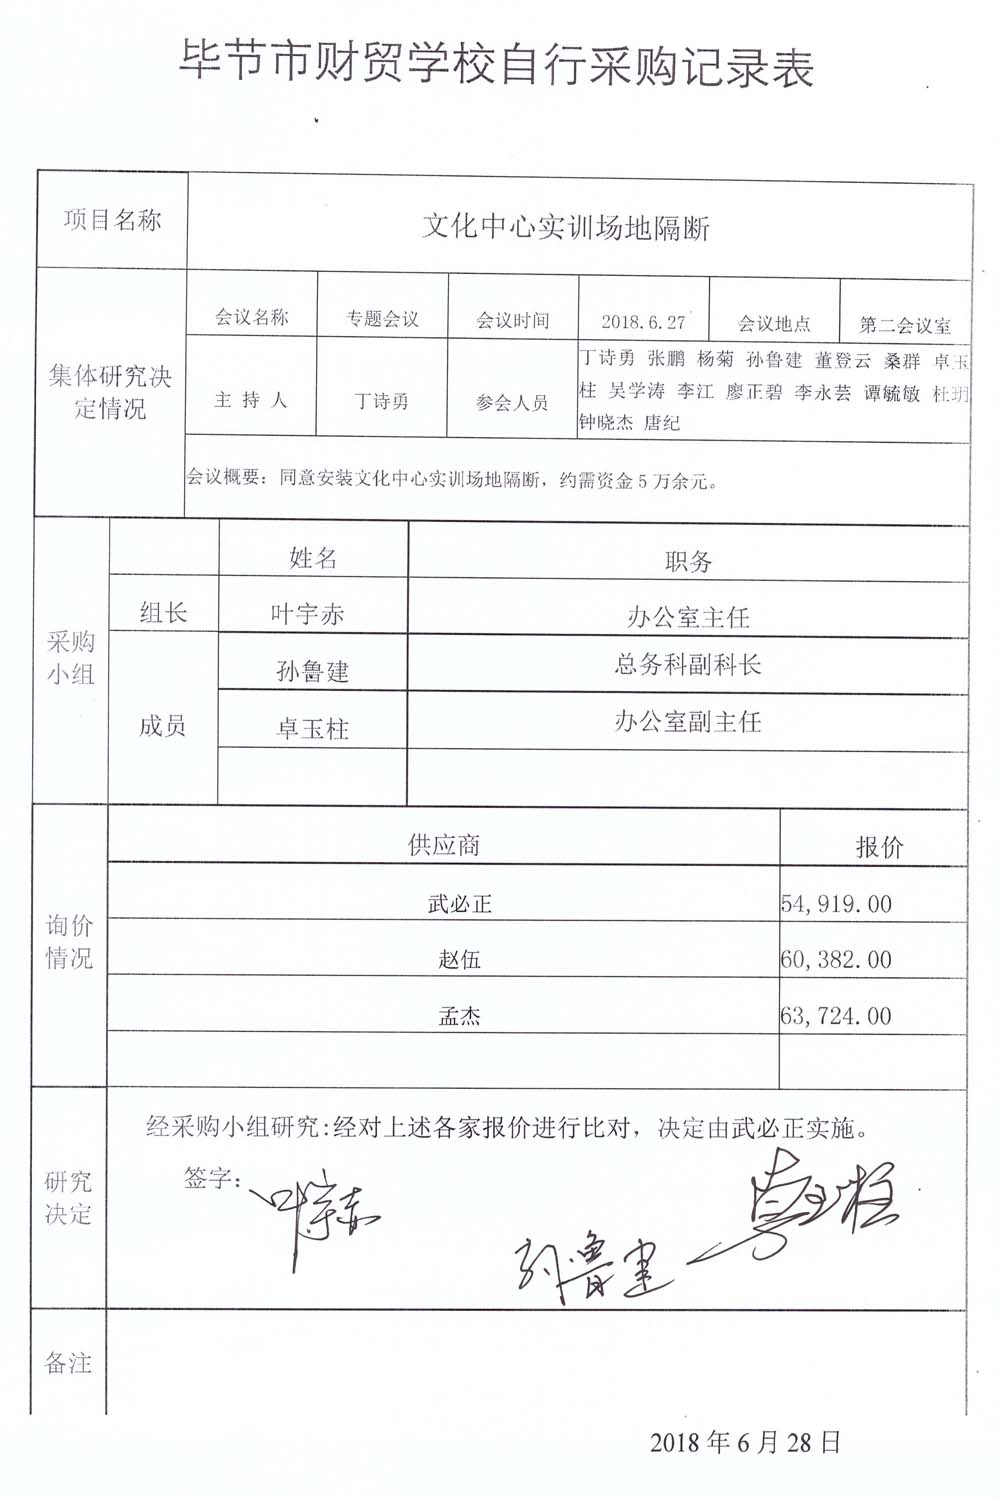 毕节市财贸学校自行采购记录表
项目名称
文化中心实训场地隔断
集体研究决
定情况
会议名称 专题会议 会议时间 2018.6.27 会议地点 第二会议室
主 持 人 丁诗勇 参会人员
丁诗勇 张鹏 杨菊 孙鲁建 董登云 桑群 卓玉
柱 吴学涛 李江 廖正碧 李永芸 谭毓敏 杜玥
钟晓杰 唐纪
会议概要：同意安装文化中心实训场地隔断，约需资金5万余元。
采购
小组
姓名 职务
组长 叶宇赤 办公室主任
成员
孙鲁建 总务科副科长
卓玉柱 办公室副主任
询价
情况
供应商 报价
武必正 54,919.00
赵伍 60,382.00
孟杰 63,724.00
研究
决定
经采购小组研究:经对上述各家报价进行比对，决定由武必正实施。
签字：
叶宇赤
孙鲁建
卓玉柱
备注
2018 年 6 月 28 日